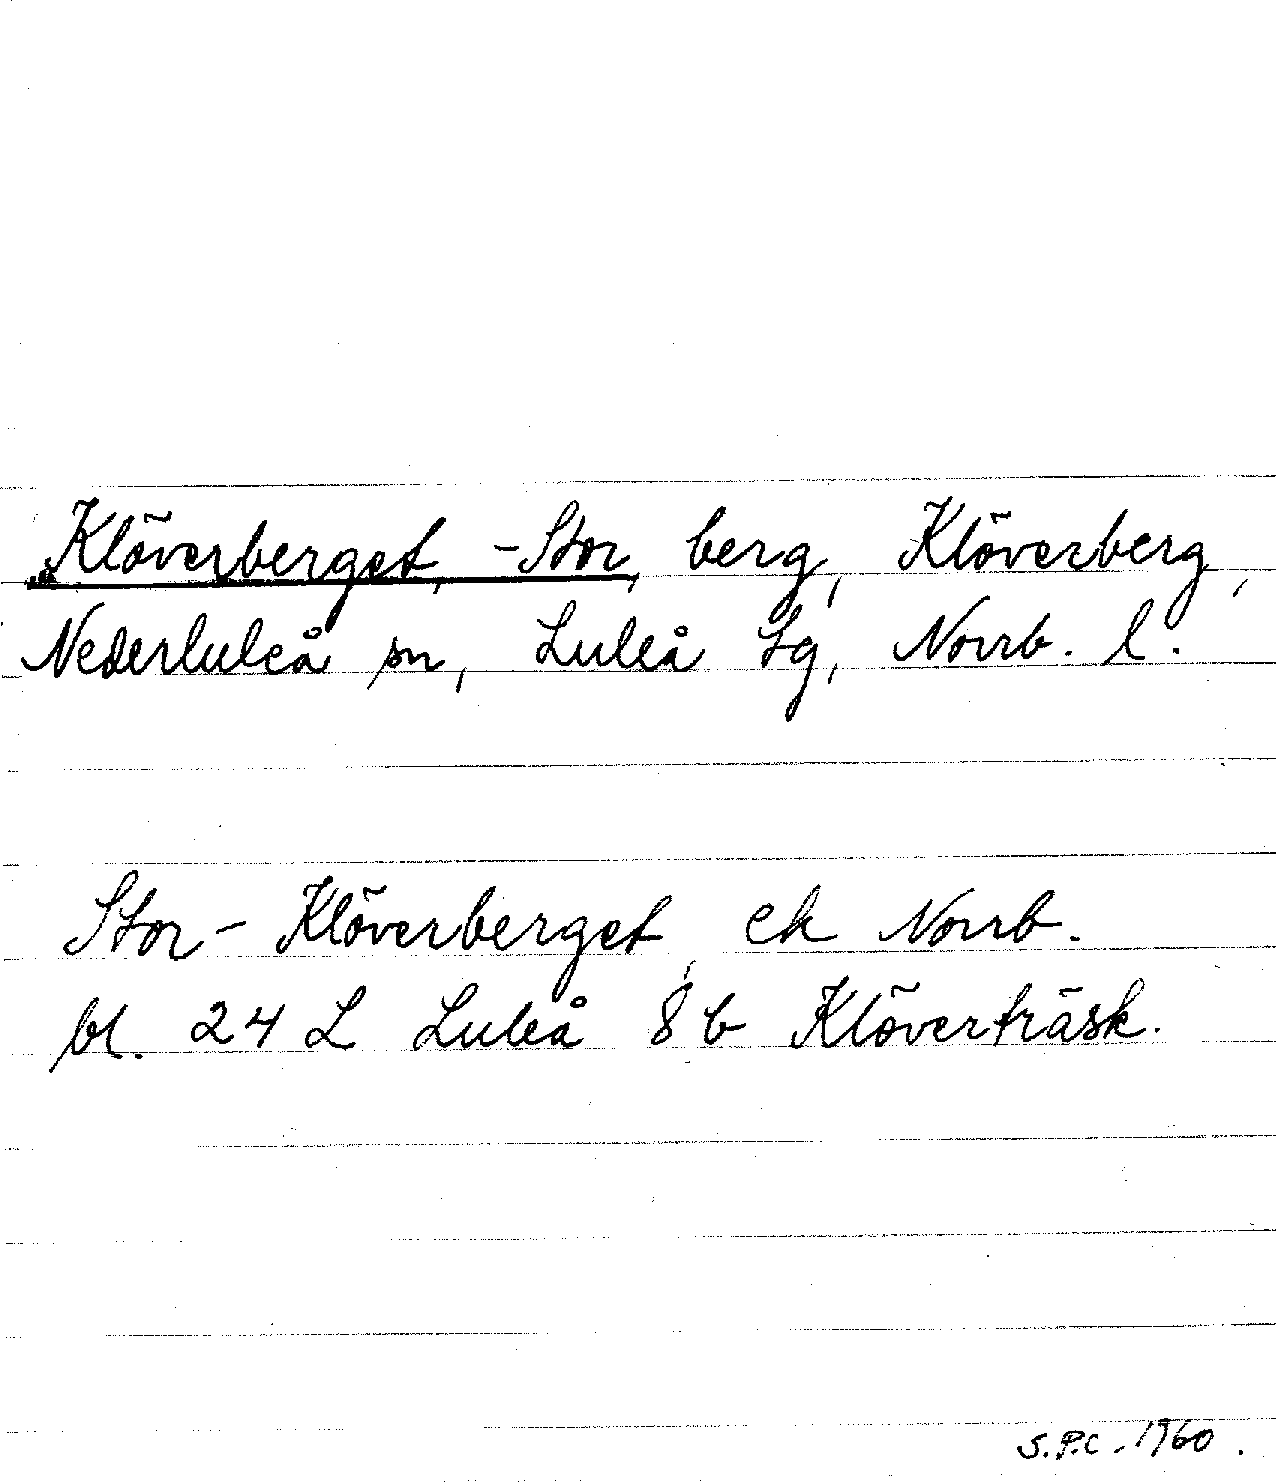 Klöverberget, -Stor, berg, Klöverberg,
Nederluleå sn, Luleå tg, Norrb. l.
Stor-Klöverberget ek Norrb.
bl. 24 L Luleå 8 b Klöverträsk.
S.P.C. 1960.